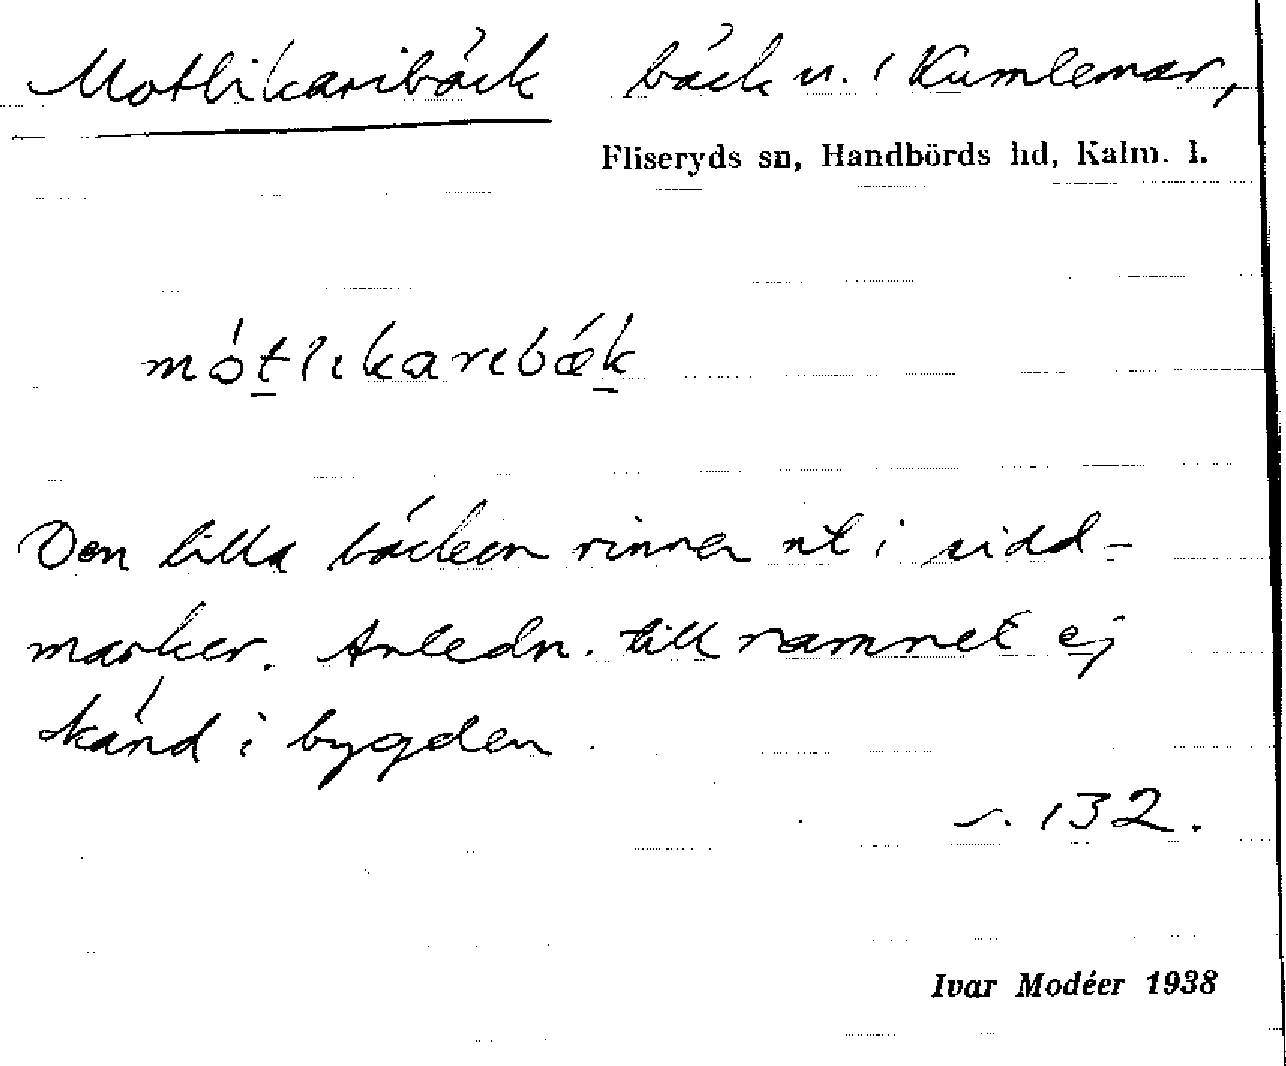 Motlikaribäck bäck u. i Kumlemar,
Fliseryds sn, Handbörds hd, Kalm. l.
mótlıkarebǽk
Den lilla bäcken rinner ut i sidd-
marker. Anledn. till namnet ej
känd i bygden.
s. 132.
Ivar Modéer 1938